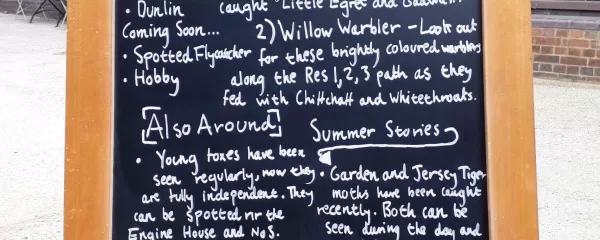 • Dunlin
caught "Little Egret and
Coming Soon...
• Spotted Flycatcher
• Hobby
2) Willow Warbler - Look out
for these brightly coloured warblers
along the Res 1, 2, 3 path as they
fed with Chiffchaff and Whitethroats.
[Also Around]
• Young foxes have been
seen regularly, now they
are fully independent. They
can be spotted nr the
Engine House and No5.
Summer Stories
• Garden and Jersey Tiger
moths have been caught
recently. Both can be
seen during the day and